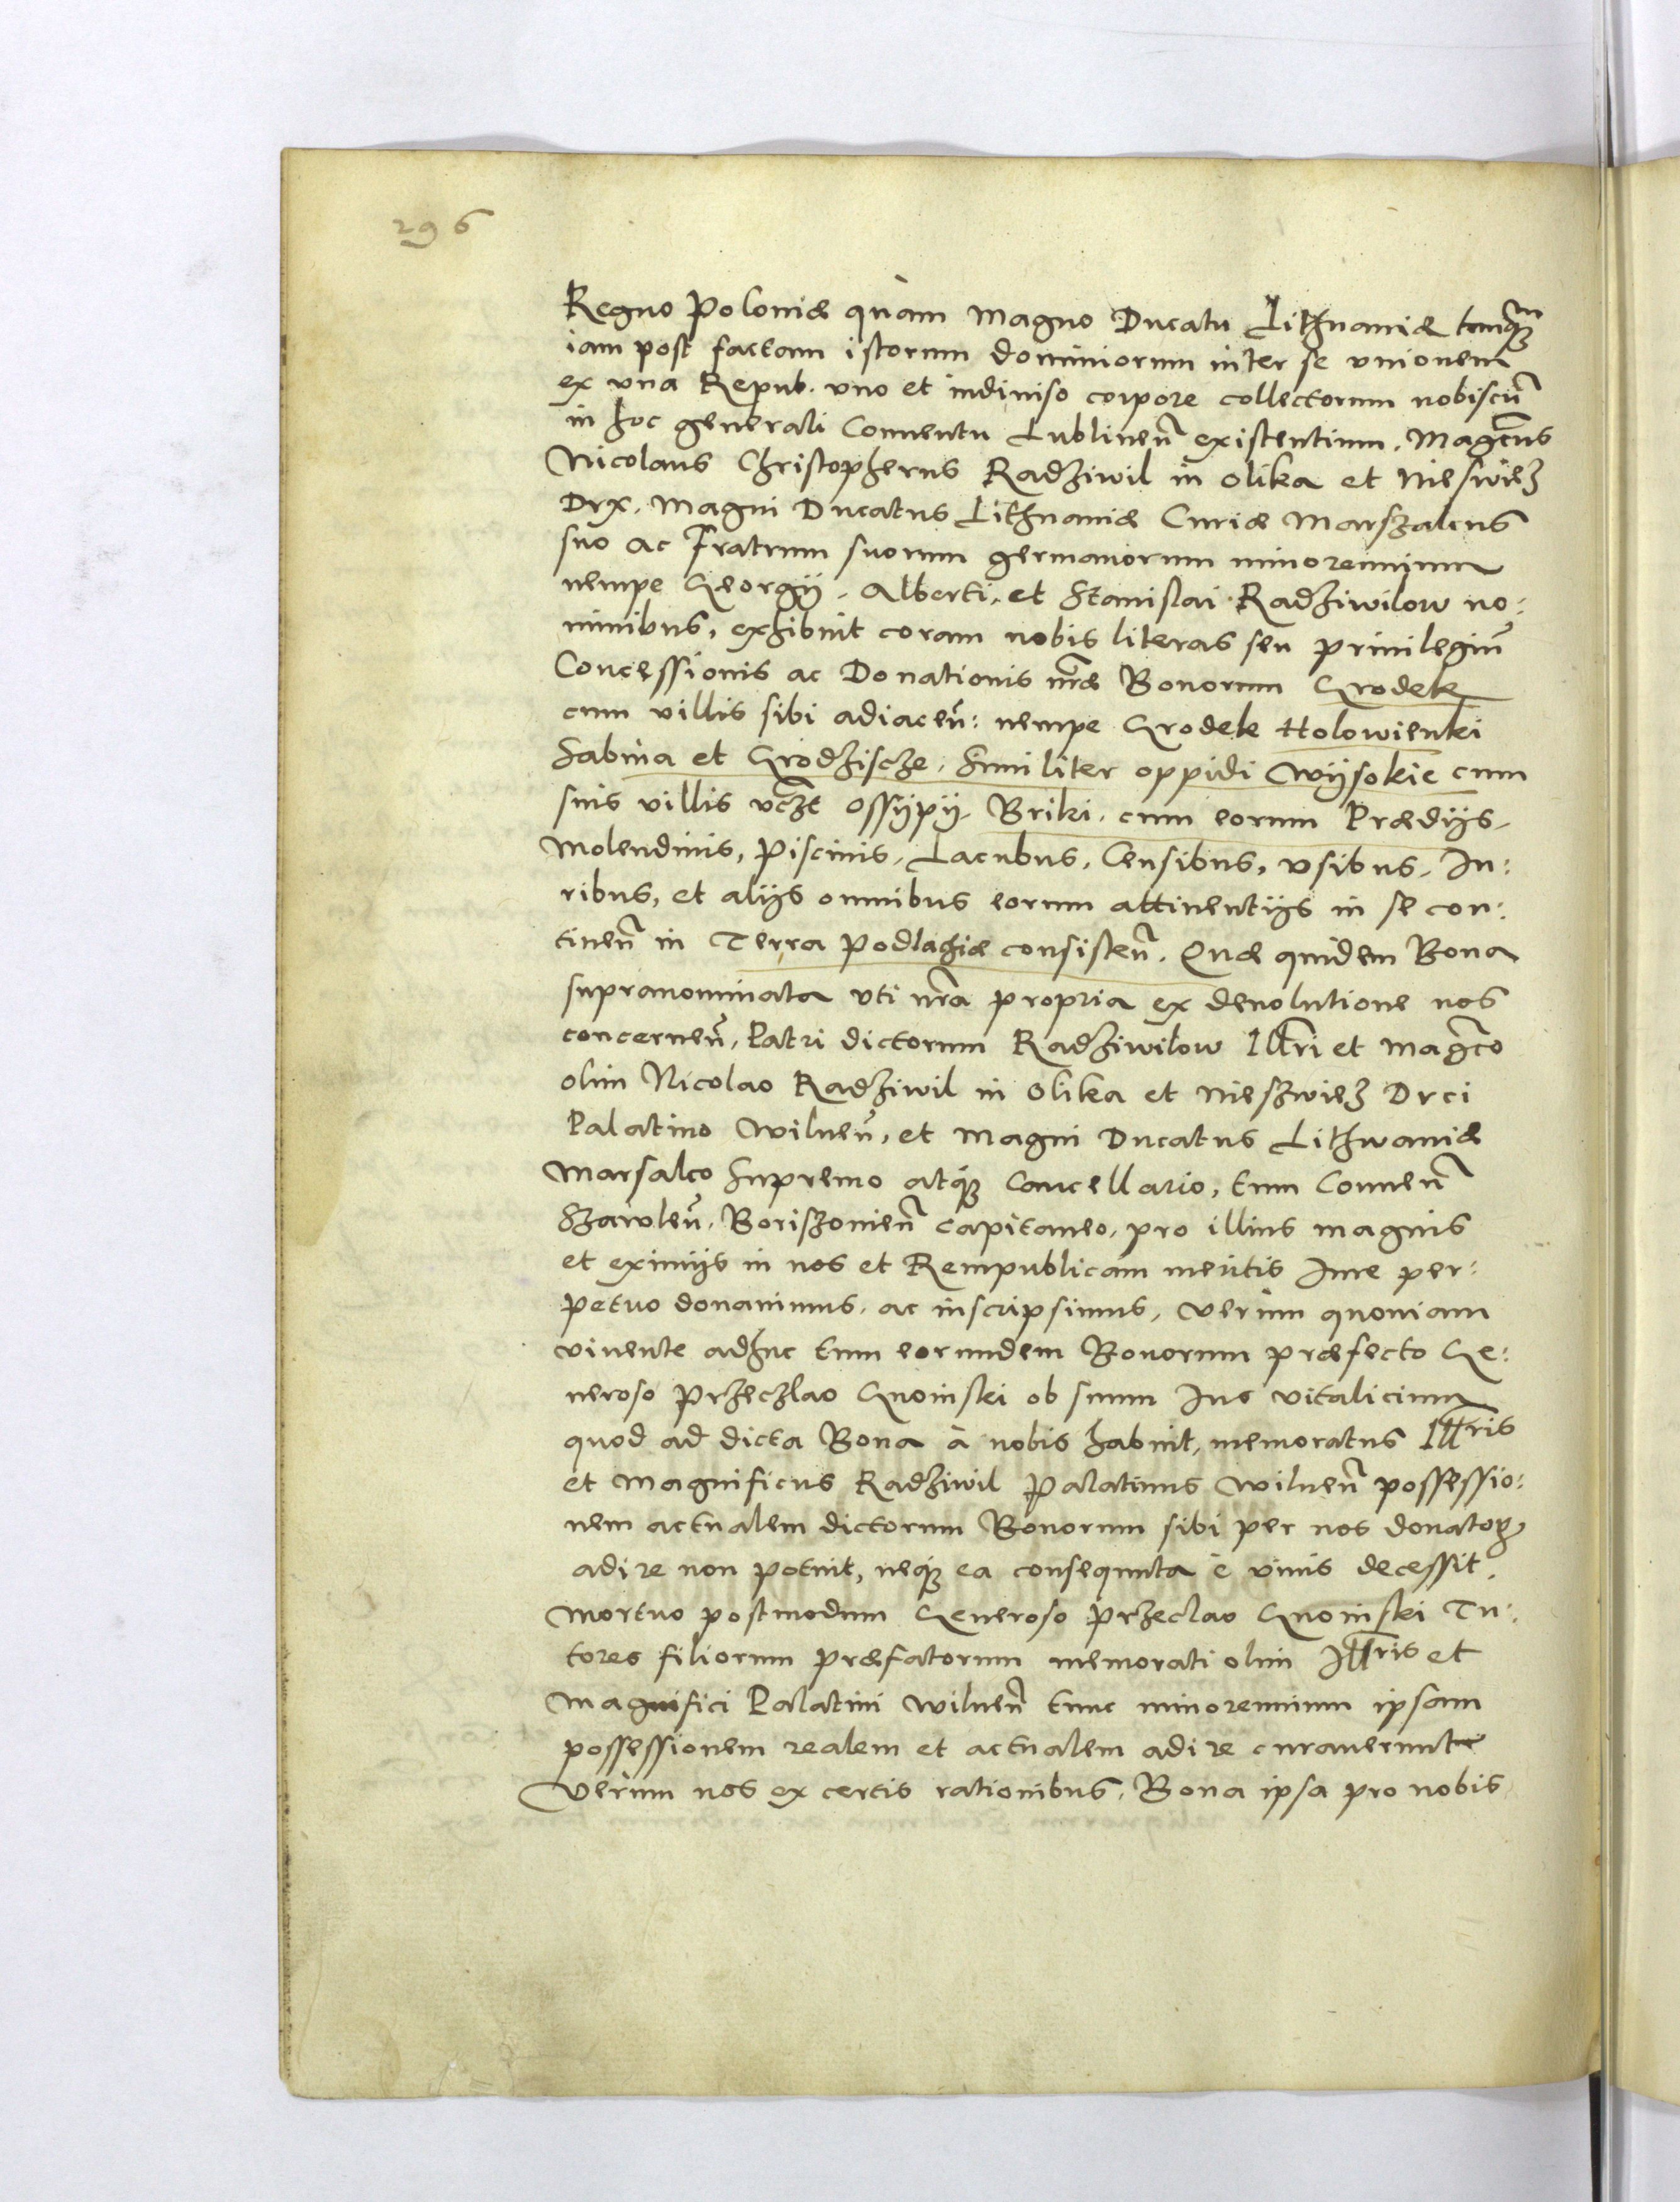 296
Regno Poloniæ quàm Magno Ducatu Lithuaniæ tanq̃ꝫ
iam post factam istorum dominiorum inter se vnionem
ex vna Repub. vno et indiuiso corpore collectorum nobiscũ
in hoc generali Conuentu Lublineñ existentium. Magcus
Nicolaus Christopherus Radziwil in Olika et Nieswiez
Dux. Magni Ducatus Lithuaniæ Curiæ Marszalcus
suo ac Fratrum suorum germanorum minorennium
nempe Georgÿ. Alberti, et Stanislai Radziwilow no:
minibus, exhibuit coram nobis literas seu priuilegiũ
Concessionis ac Donationis nræ Bonorum Grodek
cum villis sibi adiaceñ: nempe Grodek Holowienki
Sabnia et Grodziscze. Similiter oppidi Wÿsokie cum
suis villis vczt Ossÿpÿ. Briki. cum eorum Prædÿs.
Molendinis, Piscinis, Lacubus, Censibus, vsibus, Iu:
ribus, et alÿs omnibus eorum attinentÿs in se con:
tineñ in Terra Podlachiæ consisteñ. Quæ quidem Bona
supranominata vti nra propria ex deuolutione nos
concerneñ, Patri dictorum Radziwilow Illri et Magco
olim Nicolao Radziwil in Olika et Nieszwiez Duci
Palatino Wilneñ, et Magni Ducatus Lithwaniæ
Marsalco Supremo atq́ꝫ Cancellario, tum Couueñ
Szawleñ. Boriszouieñ capitaneo. pro illius magnis
et eximÿs in nos et Rempublicam meritis Iure per:
petuo donauimus. ac inscripsimus, verùm quoniam
viuente adhuc tum eorundem Bonorum præfecto Ge:
neroso Przeczlao Gnoinski ob suum Ius vitalicium
quod ad dicta Bona à nobis habuit, memoratus Illris
et Magnificus Radziwil Palatinus Wilneñ possessio:
nem actualem dictorum Bonorum sibi per nos donatoꝝ
adire non potuit, neqꝫ ea consequuta è viuis decessit.
Mortuo postmodum Generoso Przeclao Gnoinski Tu:
tores filiorum præfatorum memorati olim Illris et
Magnifici Palatini Wilneñ tunc minorennium ipsam
possessionem realem et actualem adire curauerunt
Verùm nos ex certis rationibus, Bona ipsa pro nobis